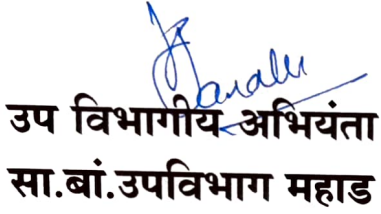 उप विभागीय अभियंता
सा.बां.उपविभाग महाड